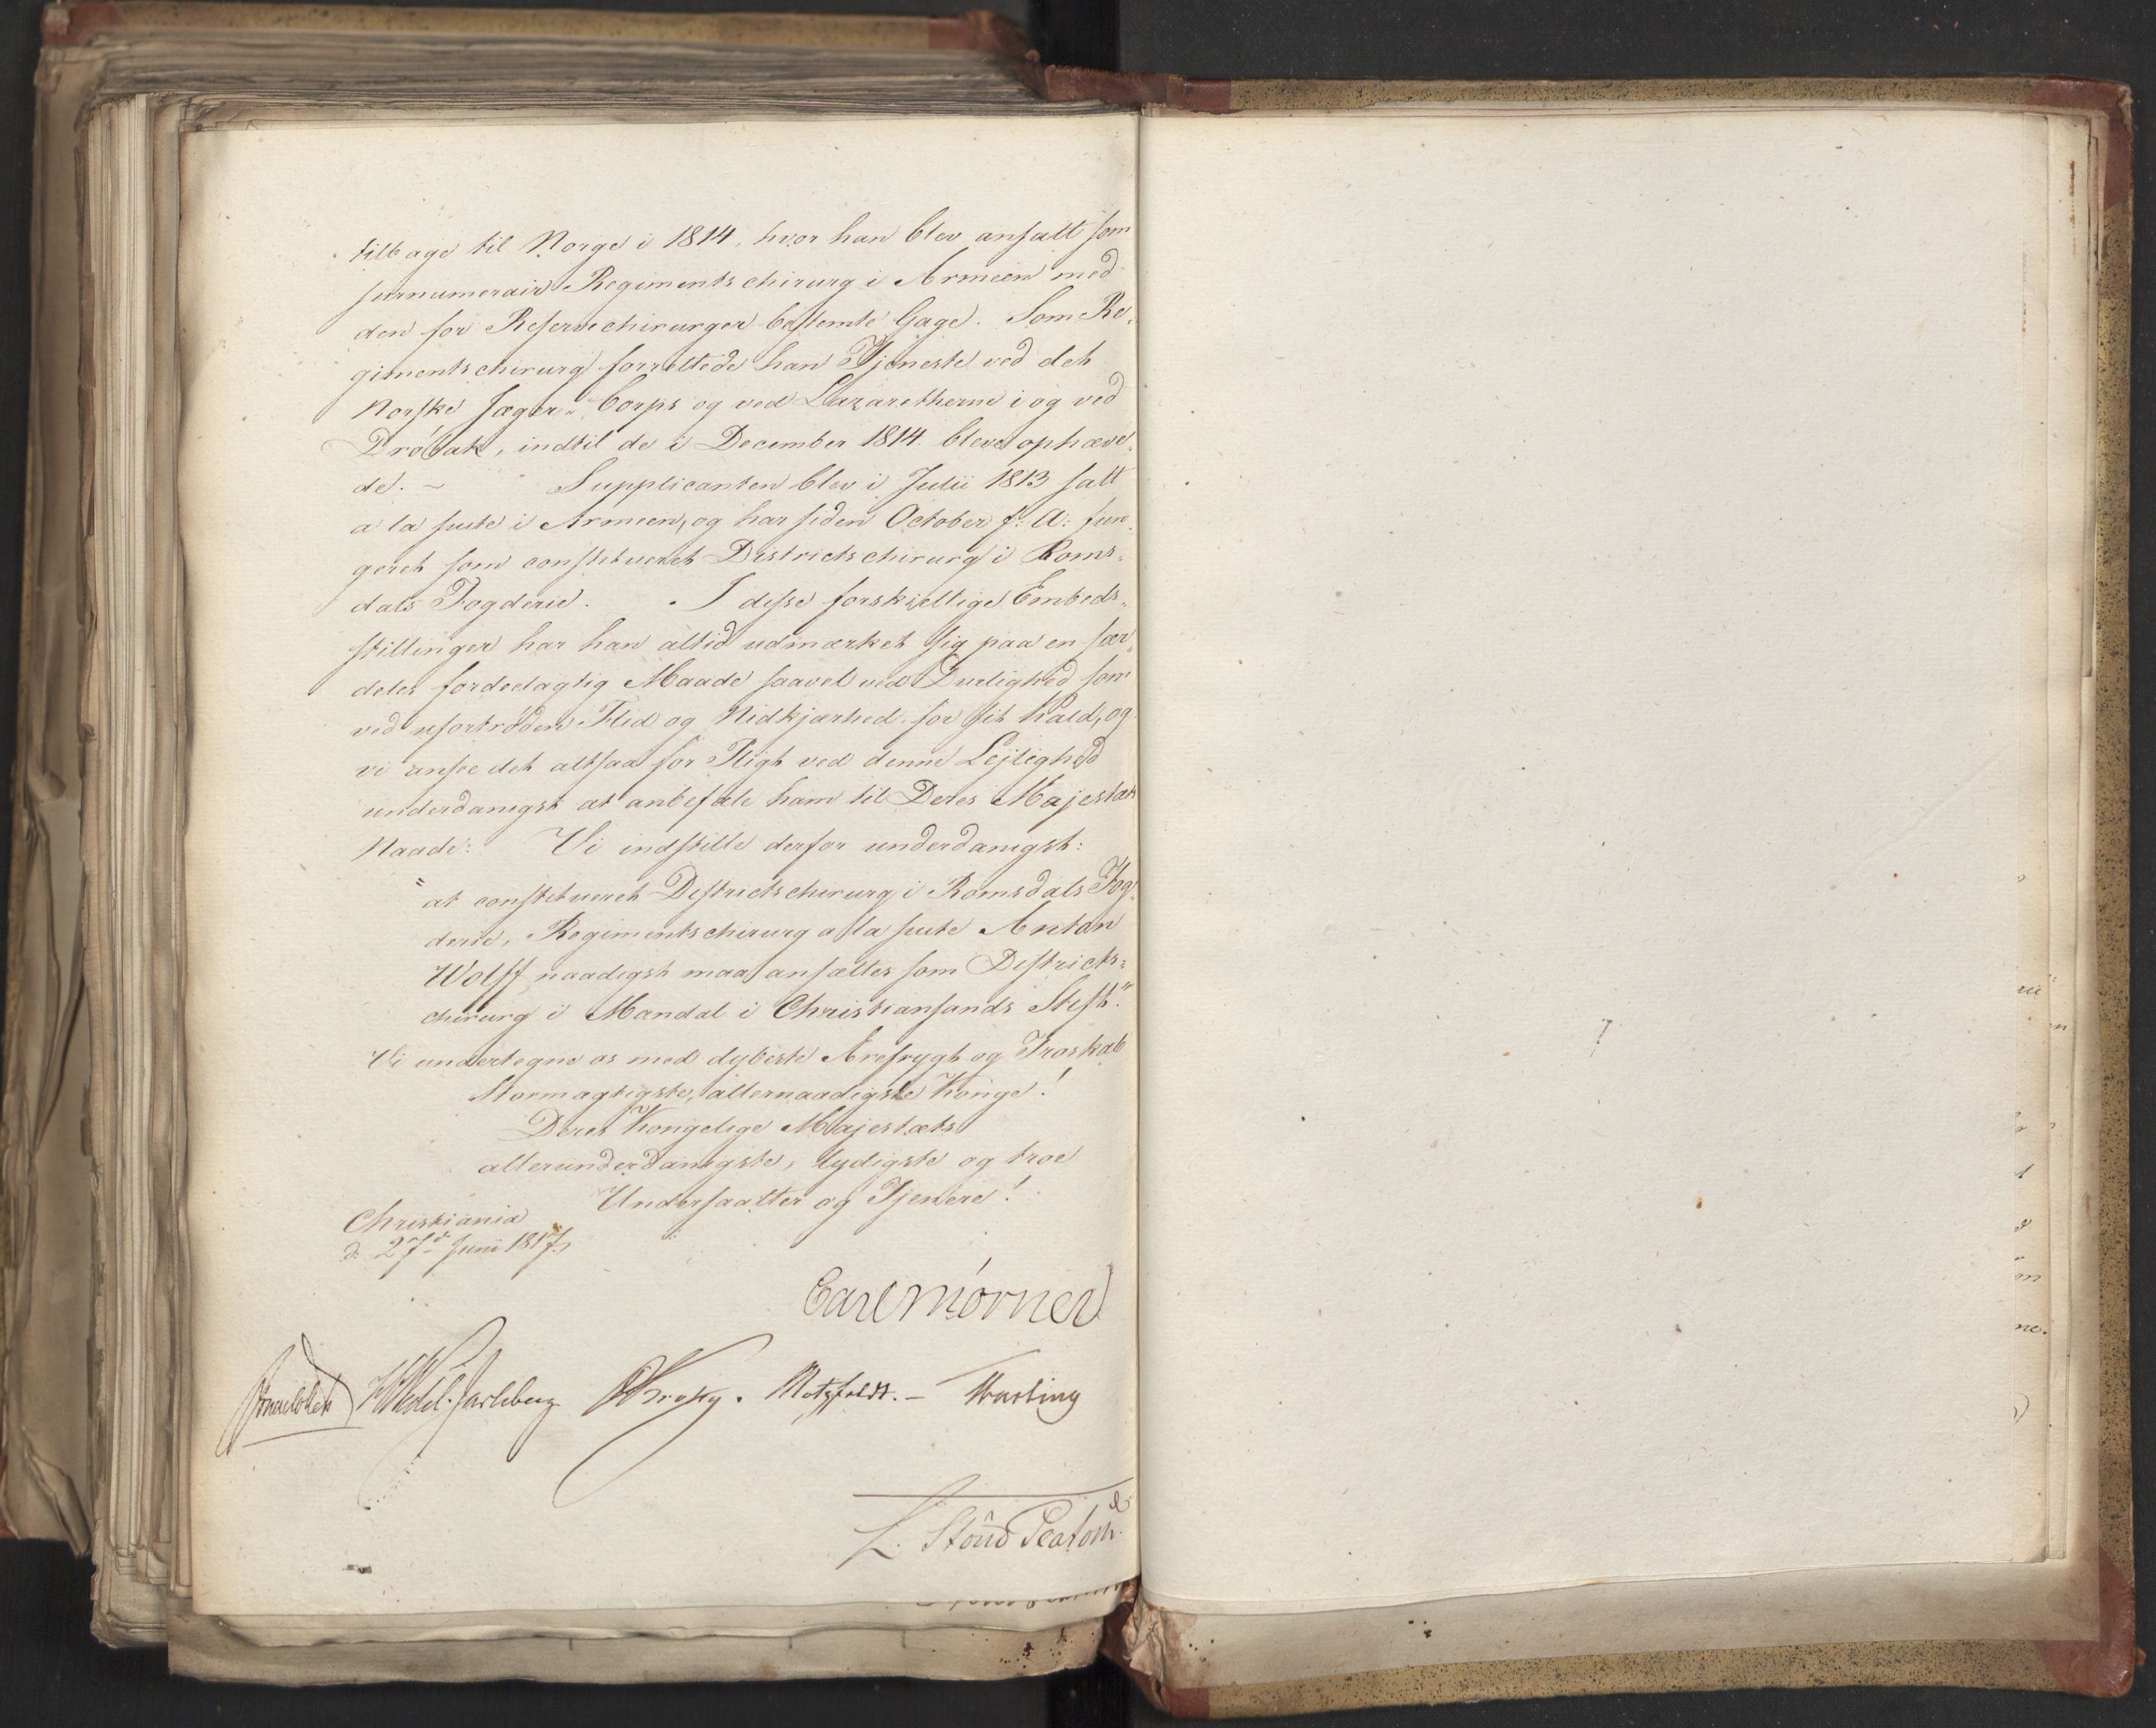 tilbage til Norge i 1814, hvor han blev ansatt som
surnumerair Regimentschirurg i Armeen med
den for Reservechirurger bestemte Gage. Som Re-
gimentschirurg forrettede han Tjeneste ved det
Norske Jæger-Corps og ved Lazaretherne i og ved
Drøbak, indtil de i December 1814 bleve ophæve-
de. – Supplicanten blev i Julii 1813 satt
a la suite i Armeen, og har siden October s: A: fun-
geret som constitueret Districtschirurg i Roms-
dals Fogderie. I disse forskiellige Embeds-
stillinger har han altid udmærket sig paa en sær-
deles fordeelagtig Maade saavel ved Duelighed som
ved ufortrøden Flid og Nidkjærhed for sit Kald, og
vi ansee det altsaa for Pligt ved denne Lejlighed
underdanigst at anbefale ham til Deres Majestæts
Naade: Vi indstille derfor underdanigst:
"at constitueret Districtschirurg i Romsdals Fog-
derie, Regimentschirurg a la suite Anton
Wolff naadigst maa ansættes som Districts-
chirurg i Mandal i Christiansands Stift."
Vi undertegne os med dybeste Ærefrygt og Troskab
Stormægtigste, allernaadigste Konge!
Deres Kongelige Majestæts
allerunderdanigste, lydigste og troe
Undersaatter og Tjenere!
Christiania
d: 27d Junii 1817.
Carl Mörner
HWedel-Jarlsberg Krogh. Motzfeldt. –
L. Stoud Platou